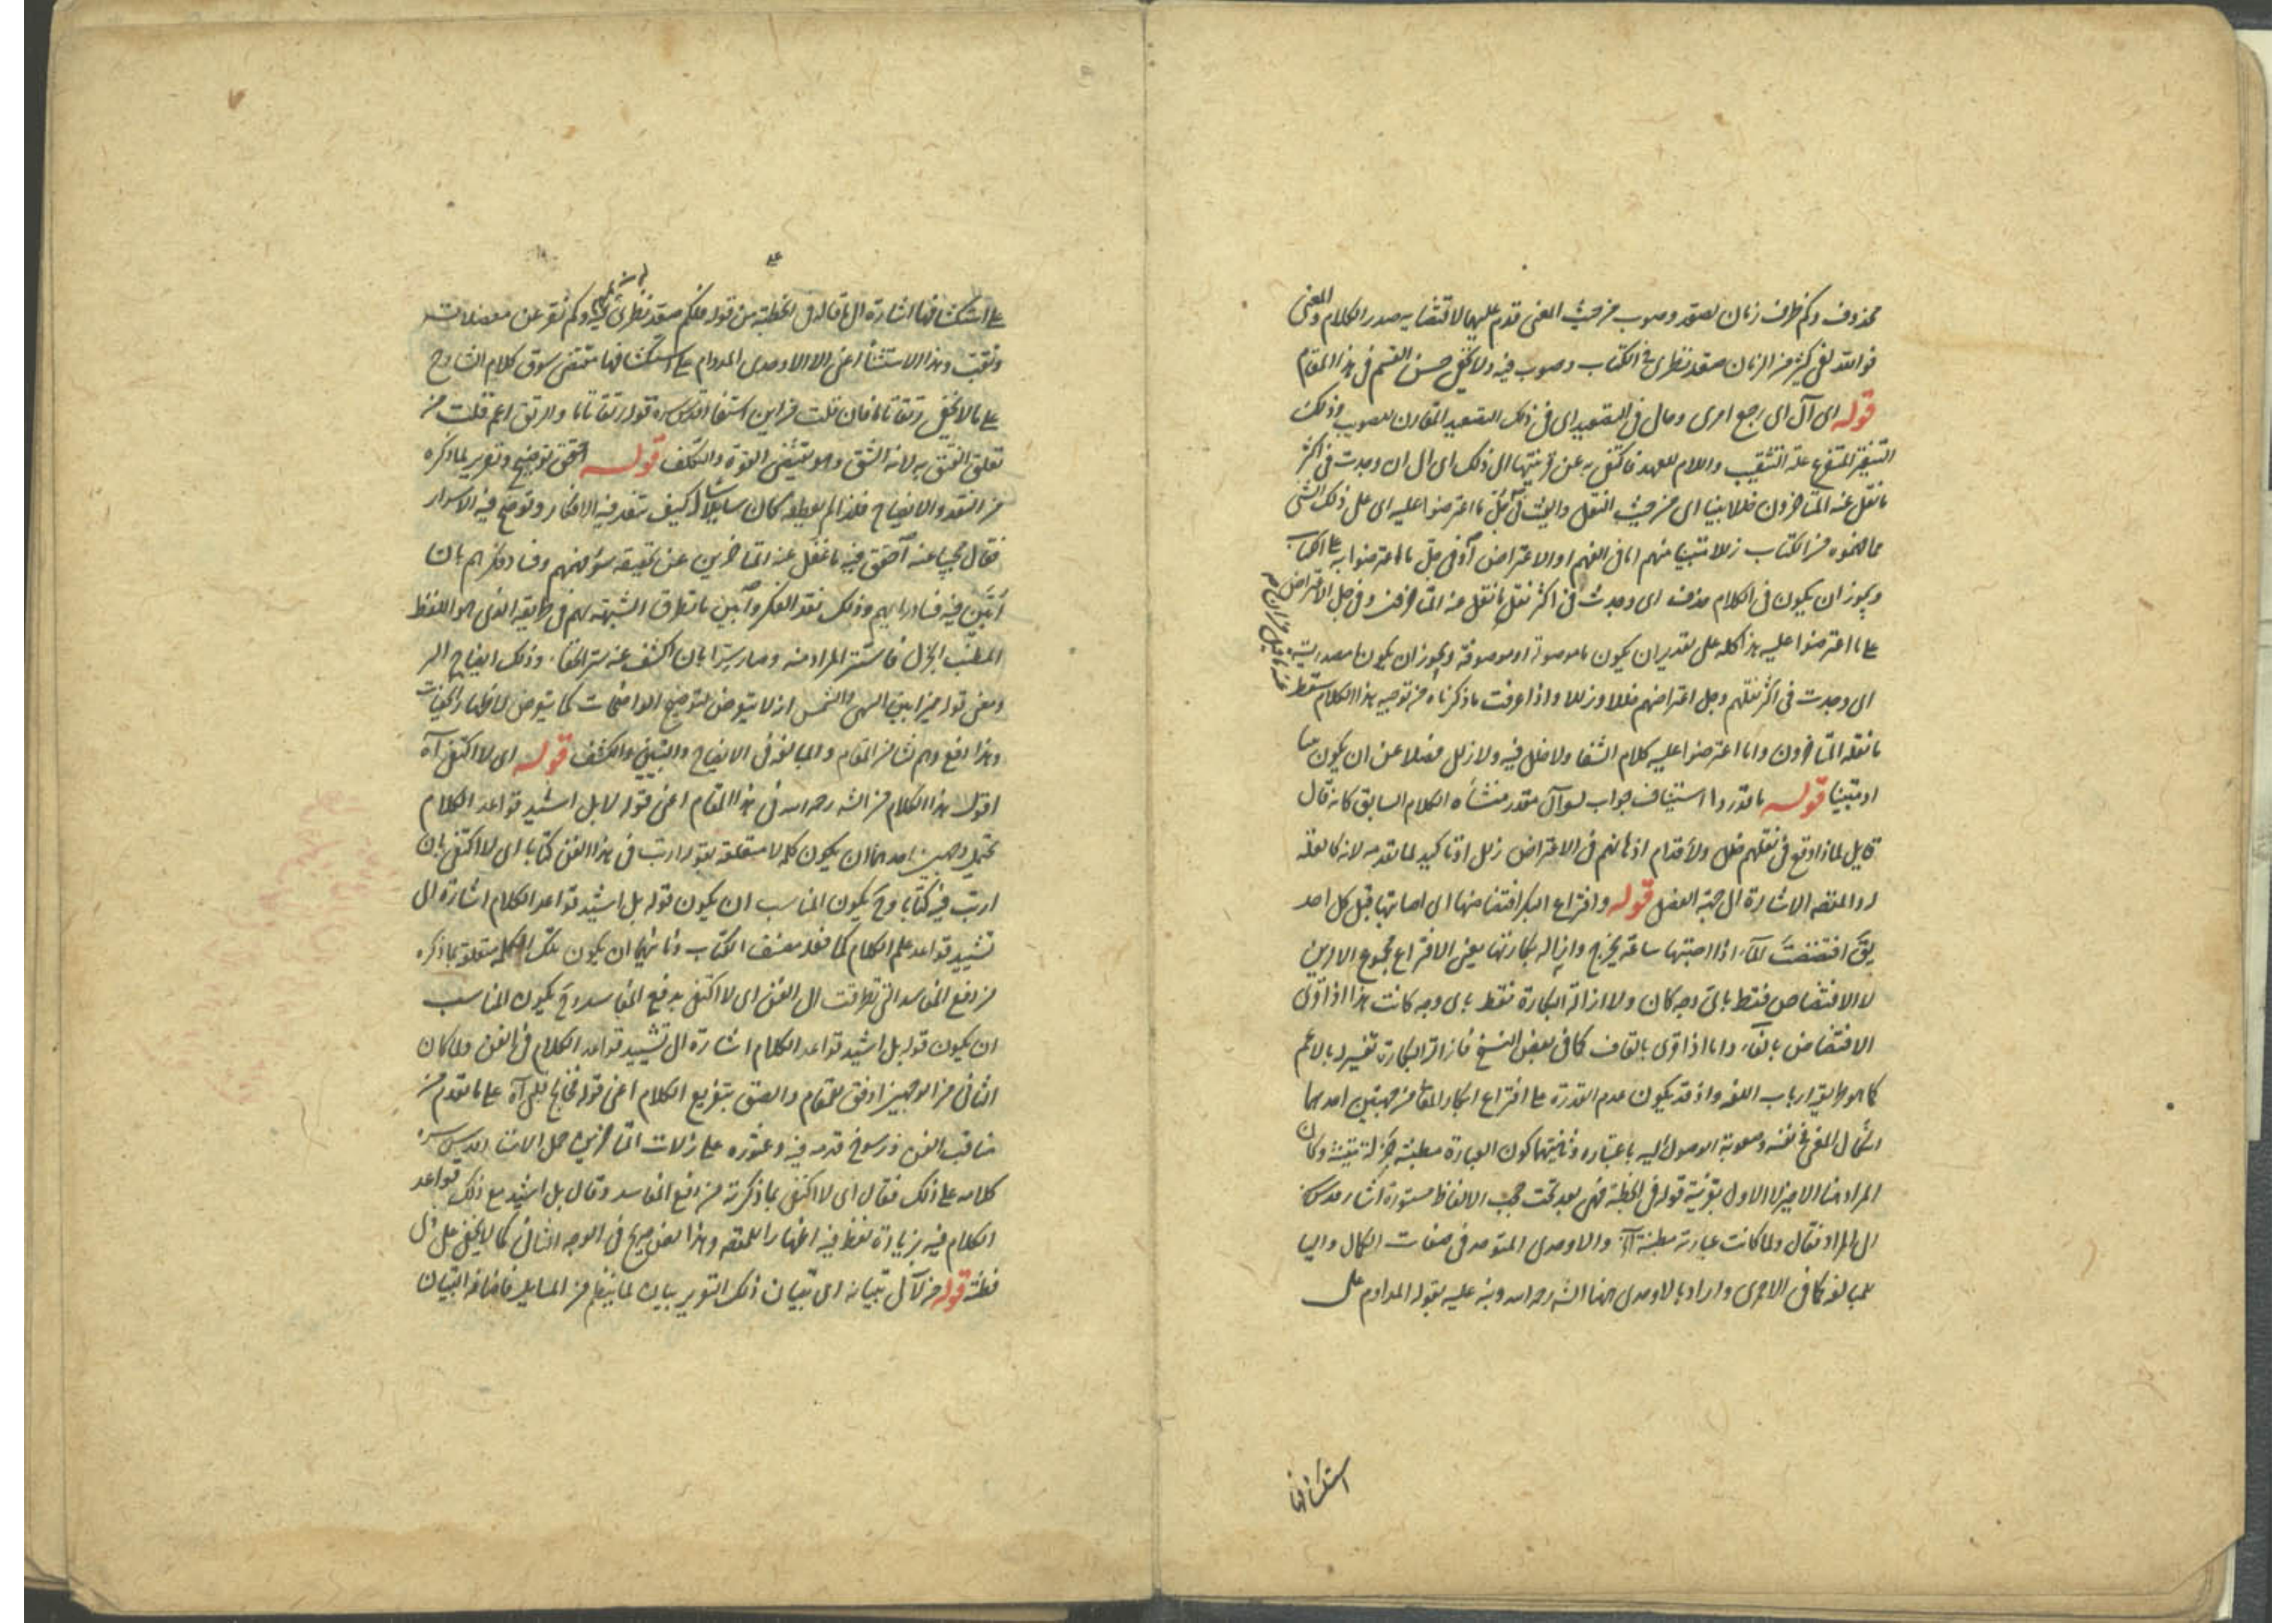 محذوف وكم ظرف زمان لصعد وصوب من حيث المعنى قدم عليهما لاقتضائه صدر الكلام والمعنى
فوالله لفى كثير من الزمان صعد نظرى فى الكتاب وصوب فيه ولا يخفى حسن القسم فى هذا المقام
قوله اى آل اى رجع امرى ومال فى التصعيد اى فى ذلك التصعيد المقارن للتصويب وذلك
التنقير المتفرع عليه التنقيب واللام للعهد فاكتفى به عن الى ذلك اى الى ان وجدت فى اكثر
ما نقل عنه المتاخرون خللا بينا اى من حيث النقل وفى جل ما اعترضوا عليه اى على ذلك الشى
مما فهموه من الكتاب زللا متبينا منهم اما فى الفهم او الاعتراض او فى جل ما اعترضوا به على الكتاب
ويجوز ان يكون فى الكلام حذف اى وجدت فى اكثر نقل ما نقل عنه المتاخرون وفى جل الاعتراض
على ما اعترضوا عليه هذا كله على تقدير ان يكون ما موصولة او موصوفة ويجوز ان يكون ما مصدرية
اى وجدت فى اكثر نقلهم وجل اعتراضهم خللا وزللا واذا عرفت ما ذكرناه من توجيه هذا الكلام سقط
ما نقله المتاخرون وما اعترضوا عليه كلام الشفا ولا خلل فيه ولا زلل فضلا عن ان يكون بينا
او متبينا قوله ما قدروا استيناف جواب لسوآل مقدر منشأه الكلام السابق كانه قال
قايل لماذا وقع فى نقلهم خلل ولاقدام اذهانهم فى الاعتراض زلل او تاكيد لما تقدمه لانه كالعلة
له والمقصه الاشارة الى جهة الفضل قوله وافتراع البكر افتضاضها اى اصابتها قبل كل احد
يقَ افتضضت الماَء اذا اصبتها ساعة يخرج وازاله بكارتها يعنى الافتراع مجموع الامرين
لا الافتضاض فقط باىّ وجه كان ولا ازالة البكارة فقط باى وجه كانت هذا اذا قرئ
الافتضاض بالفاَء واما اذا قرئ بالقاف كما فى بعض النسخ فازالة البكارة تفسير بالاعم
كما هو طريق ارباب اللغه واذ قد يكون عدم القدرة على افتراع ابكار المعانى من جهتين احدهما
اشكال المعنى فى نفسه وصعوبة الوصول اليه باعتباره وثانيتهما كون العبارة مطنبة جزلة متينة وكان
المراد هنا الاخير لا الاول بقرينة قوله فى الخطبة فهى بعد تحت حجب الالفاظ مستورة اشار قدس سره
الى المراد فقال ولما كانت عبارته مطنبة آه والاوحدى المتوحد فى صفات الكمال واليا
للمبالغه كما فى الاحمرى واراد بالاوحدى هنا الشه رحمه الله ونبه عليه بقوله المداوم على
استكشافها
على استكشافها اشارة الى ما قاله فى الخطبة من قوله فلكم صعد نظرى فيه وكم نقر عن معضلات
ونقبت وهذا الاستثنا اعنى الا الاوحدى المداوم على استكشافها مقتضى سوق كلام الشارح
على ما لا يخفى رتقا تاما فان قلت من اين استفاد قدس سره قوله رتقا تاما والرتق اعم قلت من
تعلق الفتق به لانه الشق وهو يقتضى القوة والتكلف قوله احقق توضيح وتقرير لما ذكره
من النقد والايضاح فلذا لم يعطفه كان سايلا سال كيف تنقد فيه الافكار وتوضح فيه الاسرار
فقال مجيبا عنه احقق فيه ما غفل عنه المتاخرين عن تحقيقه سؤ فهمهم وفساد فكرهم بان
أبيّن فيه فساد رايهم وذلك نقد الفكر وأبين ما تطرق الشبهة بهم فى طريقه الذى هو اللفظ
المطنب الجزل فاستتر المراد منه وصار سترا بان اكشف عنه ستر الخفا وذلك ايضاح السر
ومعنى قوله ميزا بين السهى والشمس اذ لا يتعرض لتوضيح الواضحات كما يتعرض لاظهار الخفيات
وهذا دفع وهم نشا من المقام والمبالغه فى الايضاح والتبيين والكشف قوله اى لا اكتفى آه
اقول هذا الكلام من الشه رحمه الله فى هذا المقام اعنى قوله لا بل اشيد قواعد الكلام
يحتمل وجهين احدهما ان يكون كلمة لا متعلقة بقوله ارتب فى هذا الفن كتابا اى لا اكتفى بان
ارتب فيه كتابا وح يكون المناسب ان يكون قوله بل اشيد قواعد الكلام اشارة الى
تشييد قواعد علم الكلام كما فعله مصنف الكتاب وثانيهما ان يكون تلك الكلمة متعلقة بما ذكره
من دفع المفاسد التى تطرقت الى الفن اى لا اكتفى بدفع المفاسد وح يكون المناسب
ان يكون قوله بل اشيد قواعد الكلام اشارة الى تشييد قواعد الكلام فى الفن ولما كان
الثانى من الوجهين اوفق للمقام والصق بتفريع الكلام اعنى قوله فخالج قلبى آه على ما تقدم من
مناقب الفن ورسوخ قدمه فيه وعثوره على زلات المتاخرين حمل الاستاد قدس سره
كلامه على ذلك فقال اى لا اكتفى بما ذكرته من دفع المفاسد وقال بل اشيد مع ذلك قواعد
الكلام فيه بزيادة لفظ فيه اظهارا للمقصه وهذا يعنى صريح فى الوجه الثانى كما لا يخفى على ذى
فطنة قوله من لآلى تبيانه اى تبيان ذلك التوير بيان لما ينظم من المسايل فاضافة التبيان